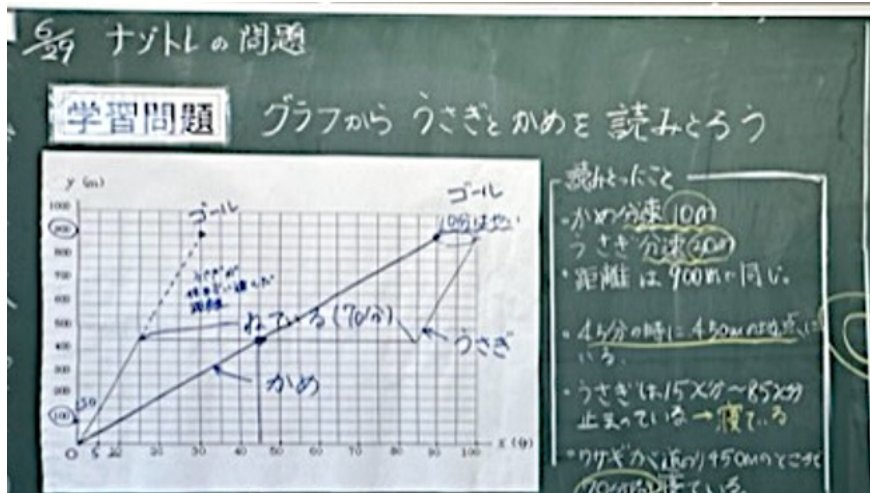 6/29 ナゾトレの問題
学習問題 グラフから うさぎと かめを 読みとろう
y (m)
1000
900
800
700
600
500
400
300
200
100
0 5 20 30 40 50 60 70 80 90 100 x (分)
ゴール
ゴール
10分はやい
ねている(70分)
うさぎ
かめ
読みとったこと
・かめ分速10m
うさぎ分速
・距離は900mで同じ。
・45分の時に450mの地点に
いる。
・うさぎは15分〜85分
止まっている→寝ている
・ウサギが道のり450mのところで
70分間寝ている